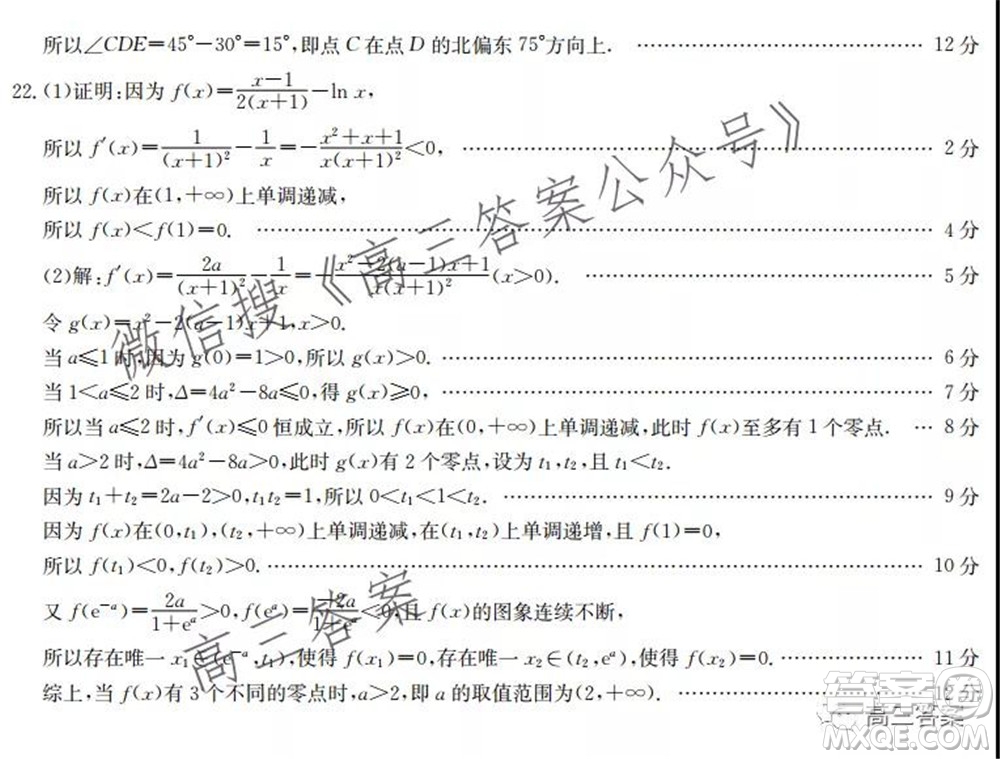 所以∠CDE=45°-30°=15°,即点 C 在点 D 的北偏东 75°方向上. …………………………… 12 分
22.(1)证明:因为 f(x)=\frac{x-1}{2(x+1)}-ln x,
所以 f′(x)=\frac{1}{(x+1)^2}-\frac{1}{x}=-\frac{x^2+x+1}{x(x+1)^2}<0, …………………………… 2 分
所以 f(x)在(1,+∞)上单调递减,
所以 f(x)<f(1)=0. …………………………… 4 分
(2)解:f′(x)=\frac{2a}{(x+1)^2}-\frac{1}{x}=-\frac{x^2-2(a-1)x+1}{x(x+1)^2}(x>0). …………………………… 5 分
令 g(x)=x²-2(a-1)x+1,x>0.
当 a≤1 时,因为 g(0)=1>0,所以 g(x)>0. …………………………… 6 分
当 1<a≤2 时,Δ=4a²-8a≤0,得 g(x)≥0. …………………………… 7 分
所以当 a≤2 时,f′(x)≤0 恒成立,所以 f(x)在(0,+∞)上单调递减,此时 f(x)至多有 1 个零点. … 8 分
当 a>2 时,Δ=4a²-8a>0,此时 g(x)有 2 个零点,设为 t₁,t₂,且 t₁<t₂.
因为 t₁+t₂=2a-2>0,t₁t₂=1,所以 0<t₁<1<t₂. …………………………… 9 分
因为 f(x)在(0,t₁),(t₂,+∞)上单调递减,在(t₁,t₂)上单调递增,且 f(1)=0,
所以 f(t₁)<0,f(t₂)>0. …………………………… 10 分
又 f(e⁻ᵃ)=\frac{2a}{1+e^a}>0,f(eᵃ)=\frac{-2a}{1+e^a}<0,且 f(x)的图象连续不断,
所以存在唯一 x₁∈(e⁻ᵃ,t₁),使得 f(x₁)=0,存在唯一 x₂∈(t₂,eᵃ),使得 f(x₂)=0. …………………………… 11 分
综上,当 f(x)有 3 个不同的零点时,a>2,即 a 的取值范围为(2,+∞). …………………………… 12 分
微信搜《高三答案公众号》
高三答案
答案圈
高三答案
MXQE.COM